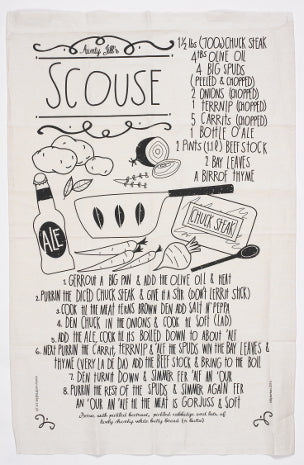 Aunty Jill's
SCOUSE
1½ lbs (700G) CHUCK STEAK
4 TBS OLIVE OIL
4 BIG SPUDS
(PEELED & CHOPPED)
2 ONIONS (CHOPPED)
1 TERRNIP (CHOPPED)
5 CARRITS (CHOPPED)
1 BOTTLE O' ALE
2 PINTS (1LTR) BEEF STOCK
2 BAY LEAVES
A BIRROF THYME
ALE
CHUCK STEAK
1. GERROUT A BIG PAN & ADD THE OLIVE OIL & HEAT
2. PURRIN THE DICED CHUCK STEAK & GIVE IT A STIR (DON'T LERRIT STICK)
3. COOK TIL THE MEAT TERNS BROWN DEN ADD SALT N' PEPPA
4. DEN CHUCK IN THE ONIONS & COOK TIL SOFT (LAD)
5. ADD THE ALE, COOK TIL ITS BOILED DOWN TO ABOUT 'ALF
6. NEXT PURRIN THE CARRITS, TERRNIP & 'ALF THE SPUDS WIV THE BAY LEAVES &
THYME (VERY LA DE DA) ADD THE BEEF STOCK & BRING TO THE BOIL
7. DEN TURNIT DOWN & SIMMER FER 'ALF AN 'OUR
8. PURRIN THE REST OF THE SPUDS & SIMMER AGAIN FER
AN 'OUR AN 'ALF TIL THE MEAT IS GORJUSS & SOFT
Serve with pickled beetroot, pickled cabbage and lots of
lovely chunky white butty bread (n' butter)